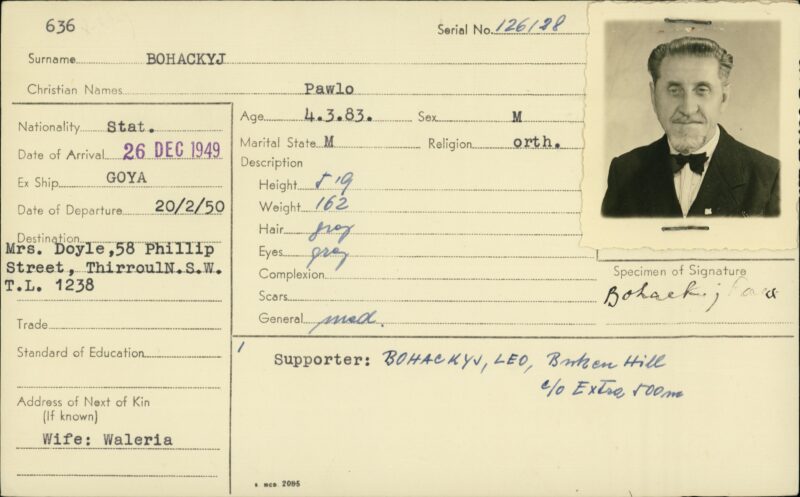 636
Serial No. 126128
Surname BOHACKYJ
Christian Names Pawlo
Nationality Stat.
Date of Arrival 26 DEC 1949
Ex Ship GOYA
Date of Departure 20/2/50
Destination
Mrs. Doyle,58 Phillip
Street, ThirroulN.S.W.
T.L. 1238
Trade
Standard of Education
Address of Next of Kin
(If known)
Wife: Waleria
Age 4.3.83. Sex M
Marital State M Religion orth.
Description
Height 5'9
Weight 162
Hair gray
Eyes gray
Complexion
Scars
General med.
Specimen of Signature
Bohackyj
Supporter: BOHACKYJ, LEO, Broken Hill
c/o Extra
2095